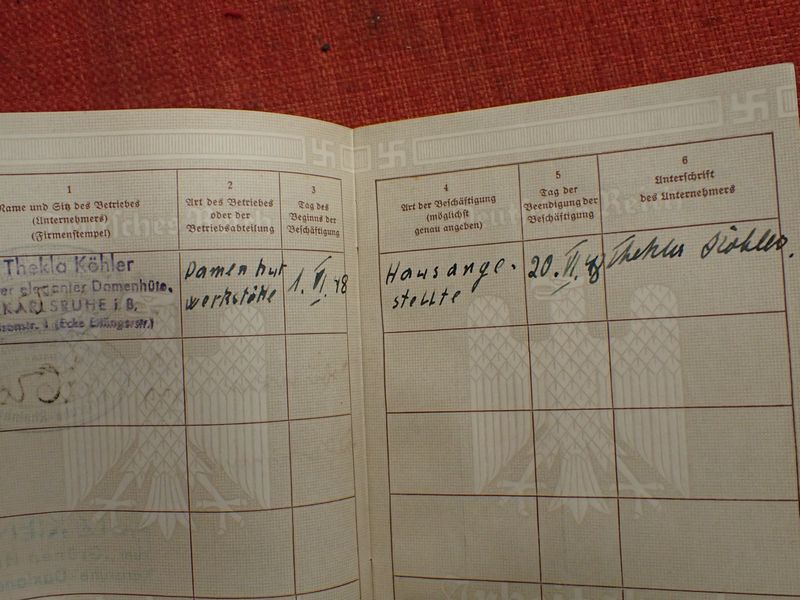 1
Name und Sitz des Betriebes
(Unternehmers)
(Firmenstempel)
2
Art des Betriebes
oder der
Betriebsabteilung
3
Tag des
Beginns der
Beschäftigung
4
Art der Beschäftigung
(möglichst
genau angeben)
5
Tag der
Beendigung der
Beschäftigung
6
Unterschrift
des Unternehmers
Thekla Köhler
eleganter Damenhüte,
KARLSRUHE i. B.
(Ecke Ettlingerstr.)
Damenhut
werkstätte
1. VI. 48
Hausange-
stellte
20. VI. 48
Thekla Köhler.